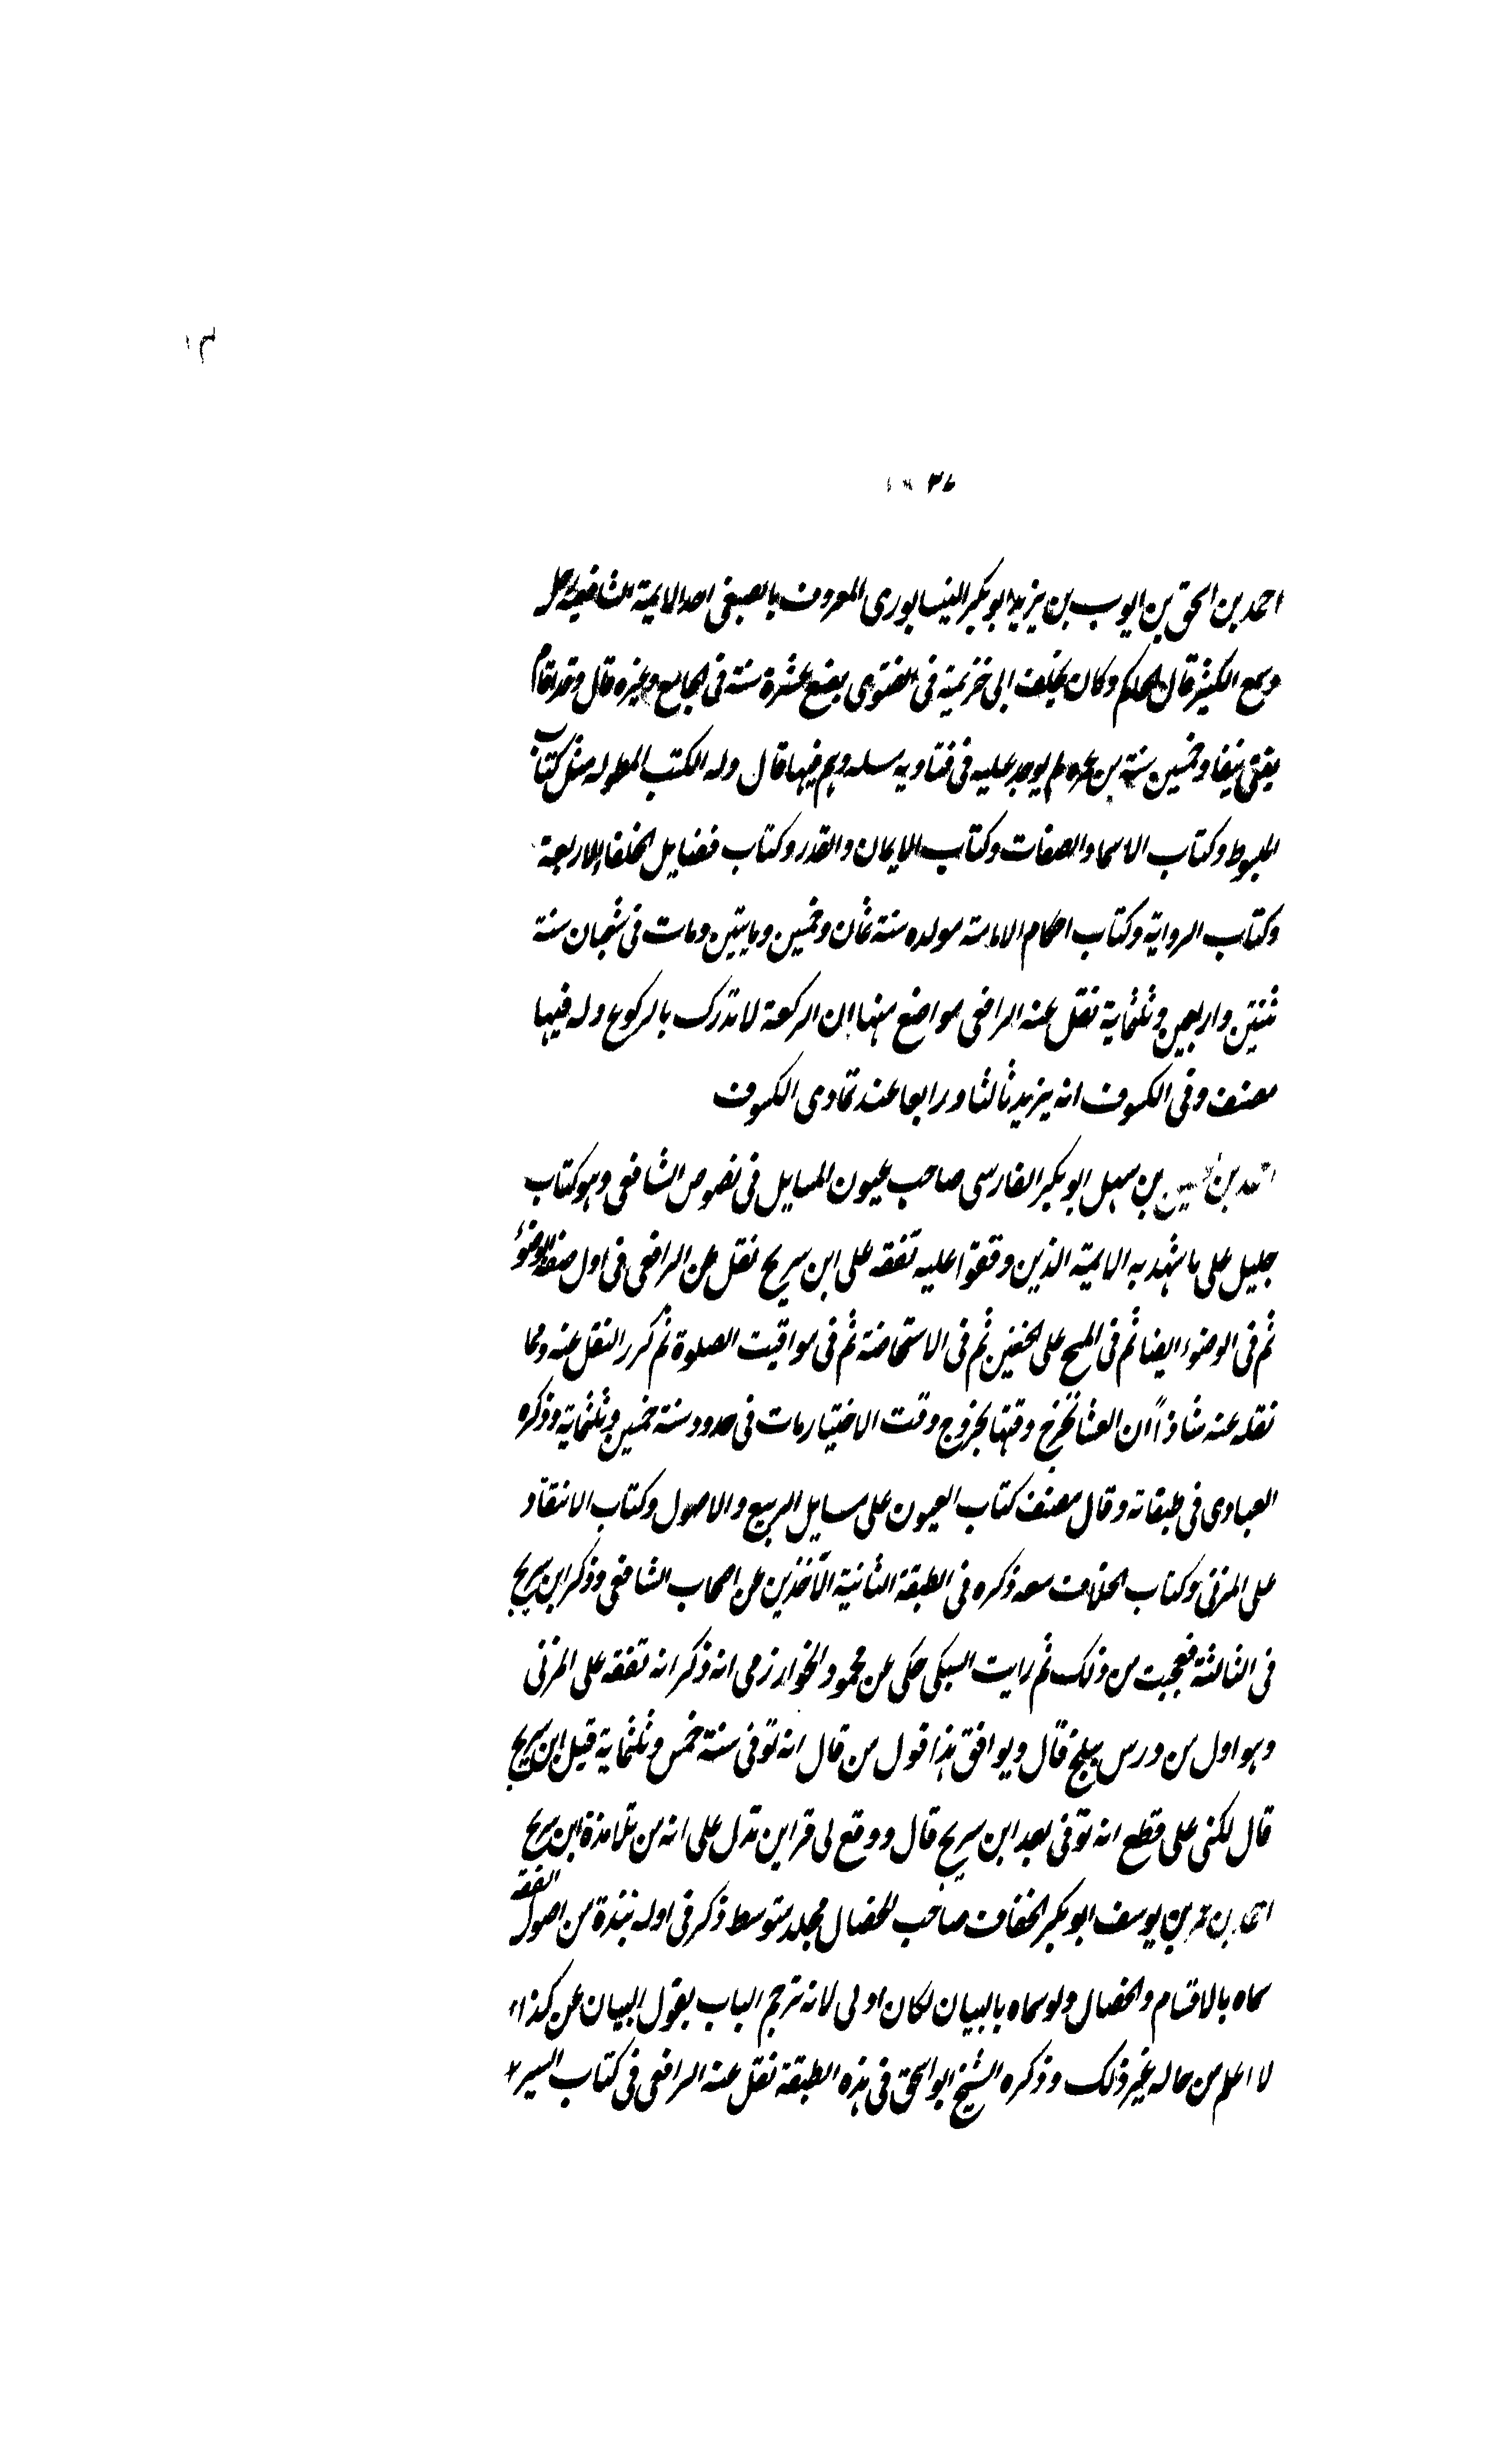 احمد بن اسحق بن ايوب بن يزيد ابو بكر النيسابورى المعروف بالصبغى احد الايمة الشافعية رحل
وسمع الكثير قال الحاكم وكان يخلف ابن خزيمة فى الفتوى بضع عشرة سنة فى الجامع وغيره قال وقد اقام
يفتى نيفا وخمسين سنة من عمره لم يوجد عليه فى فتاويه مسئلة وهم فيها قال وله الكتب المطوله مثل كتاب
المبسوط وكتاب الاسما والصفات وكتاب الايمان والقدر وكتاب فضايل الخلفا الاربعة
وكتاب الرواية وكتاب احكام الامامة مولده سنة ثمان وخمسين ومايتين ومات فى شعبان سنة
ثنتين واربعين وثلثماية نقل عنه الرافعى مواضع منها ان الركعة لا تدرك بالركوع وله فيها
مصنف وفى الكسوف انه يزيد ثالثا ورابعا عند تمادى الكسوف
احمد بن الحسين بن سهل ابو بكر الفارسى صاحب عيون المسايل فى نصوص الشافعى وهو كتاب
جليل على ما شهد به الايمة الذين وقفوا عليه تفقه على ابن سريج نقل عن الرافعى فى اول صفة الوضوء
ثم فى الوضوء ايضا ثم فى المسح على الخفين ثم فى الاستحاضة ثم فى مواقيت الصلوة ثم كرر النقل عنه ومما
نقله عنه شاذاً ان العشا تخرج وقتها بخروج وقت الاختيار مات فى حدود سنة خمسين وثلثماية وذكره
العبادى فى طبقاته وقال مصنف كتاب العيون على مسايل الربيع والاصول وكتاب الانتقاد
على المزنى وكتاب الخلاف معه ذكره فى الطبقة الثانية الآخذين عن اصحاب الشافعى وذكر ابن سريج
فى الثالثة فعجبت من ذلك ثم رايت السبكى حكى عن محمود الخوارزمى انه ذكر انه تفقه على المزنى
وهو اول من درس ببلخ قال ويوافق هذا قول من قال انه توفى سنة خمس وثلثماية قبل ابن سريج
قال لكنى على قطع انه توفى بعد ابن سريج قال ووقع لى قراين تدل على انه من تلامذة ابن سريج
احمد بن عمر بن يوسف ابو بكر الخفاف صاحب الخصال مجلد متوسط ذكر فى اوله نبذة من اصول الفقه
سماه بالاقسام والخصال ولو سماه بالبيان لكان اولى لانه يترجم الباب بقول البيان عن كذا
لا اعلم من حاله غير ذلك وذكره الشيخ ابو اسحق فى هذه الطبقة نقل عنه الرافعى فى كتاب السير